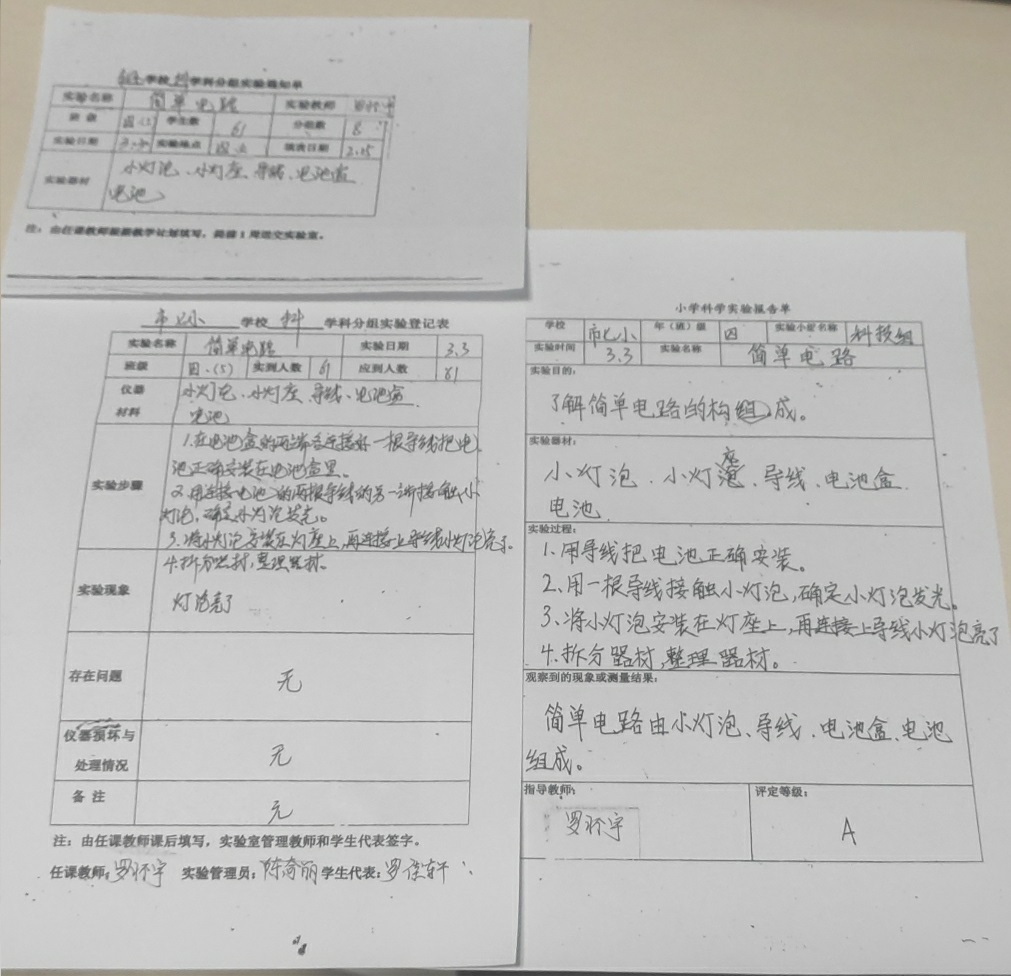 学校 科 学科分组实验通知单
实验名称 简单电路 实验教师
班级 四.(5) 学生数 61 分组数 8
实验日期 实验地点 填表日期 2.25
实验器材 小灯泡、小灯座、导线、电池盒
电池
注：由任课教师根据教学计划填写，提前1周送交实验室。
市七小 学校 科 学科分组实验登记表
实验名称 简单电路 实验日期 3.3
班级 四.(5) 实到人数 61 应到人数 61
仪器
材料
小灯泡、小灯座、导线、电池盒
电池
实验步骤
1.在电池盒的两端各连接好一根导线把电
池正确安装在电池盒里。
2.用连接电池的两根导线的另一端接触小
灯泡，确定小灯泡发光。
3.将小灯泡安装在灯座上，再连接上导线小灯泡亮了
4.拆分器材，整理器材。
实验现象
灯泡亮了
存在问题 无
仪器损坏与
处理情况 无
备注 无
注：由任课教师课后填写，实验室管理教师和学生代表签字。
任课教师：罗怀宇 实验管理员：陈奇丽 学生代表：罗
小学科学实验报告单
学校 市七小 年（班）级 四 实验小组名称 科技组
实验时间 3.3 实验名称 简单电路
实验目的：
了解简单电路的构组成。
实验器材：
小灯泡、小灯座、导线、电池盒
电池
实验过程：
1.用导线把电池正确安装。
2、用一根导线接触小灯泡，确定小灯泡发光。
3、将小灯泡安装在灯座上，再连接上导线小灯泡亮了
4.拆分器材，整理器材。
观察到的现象或测量结果：
简单电路由小灯泡、导线、电池盒、电池
组成。
指导教师： 评定等级：
罗怀宇 A